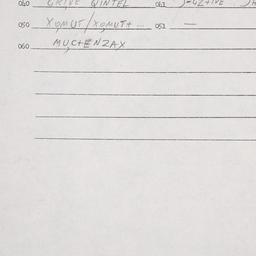 040 GRIVE QINTEL 041
050 XQMUT/XQMUTH ... 051 —
060 MUCHENZAX